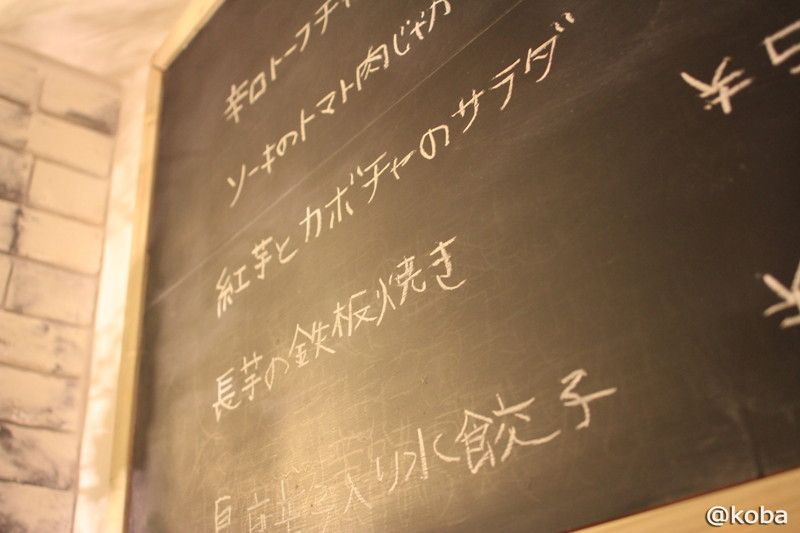 辛口トーフチャ
ソーキのトマト肉じゃが
紅芋とカボチャのサラダ
長芋の鉄板焼き
入り水餃子
@koba